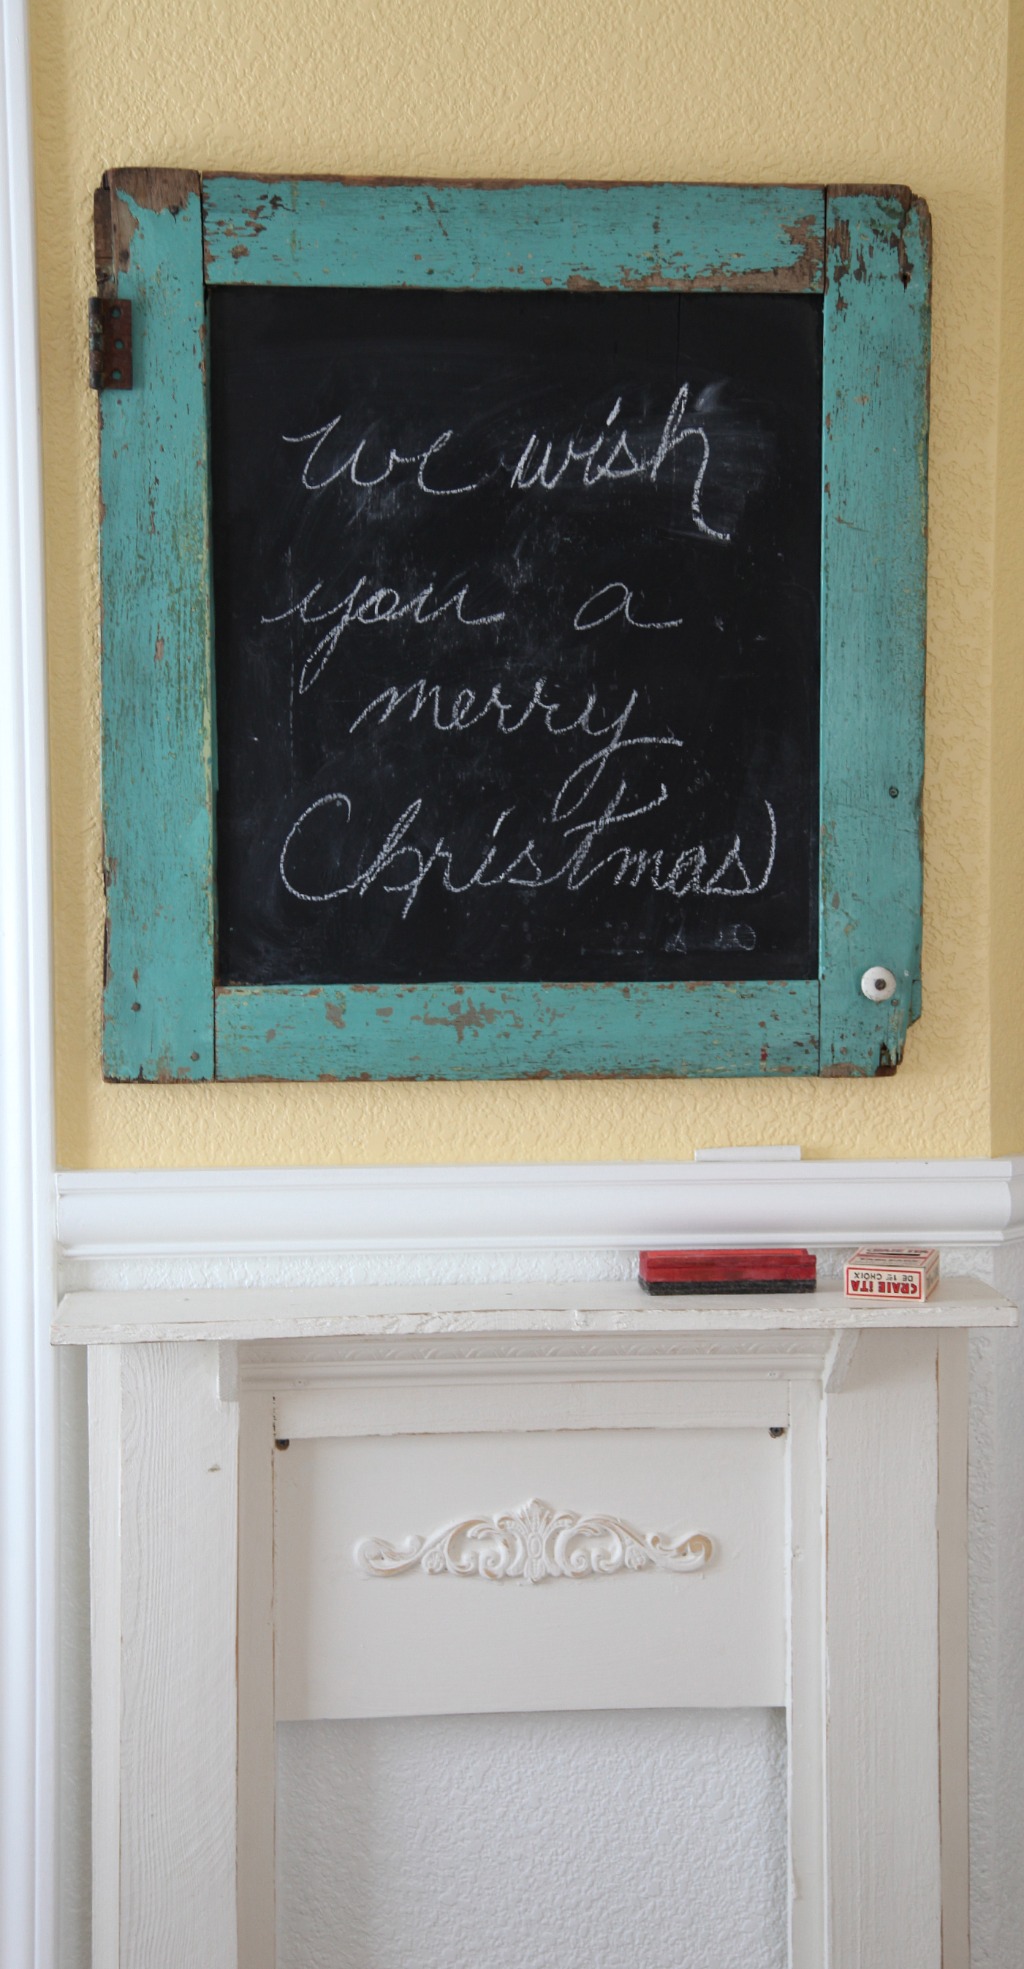 we wish
you a
merry
Christmas
CRAIE ITA
DE 1er CHOIX